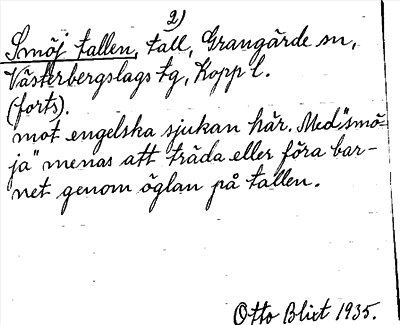 2)
Smöj tallen, tall, Grangärde sn,
Västerbergslags tg, Kopp l.
(forts).
mot engelska sjukan här. Med "smö-
ja" menas att träda eller föra bar-
net genom öglan på tallen.
Otto Blixt 1935.